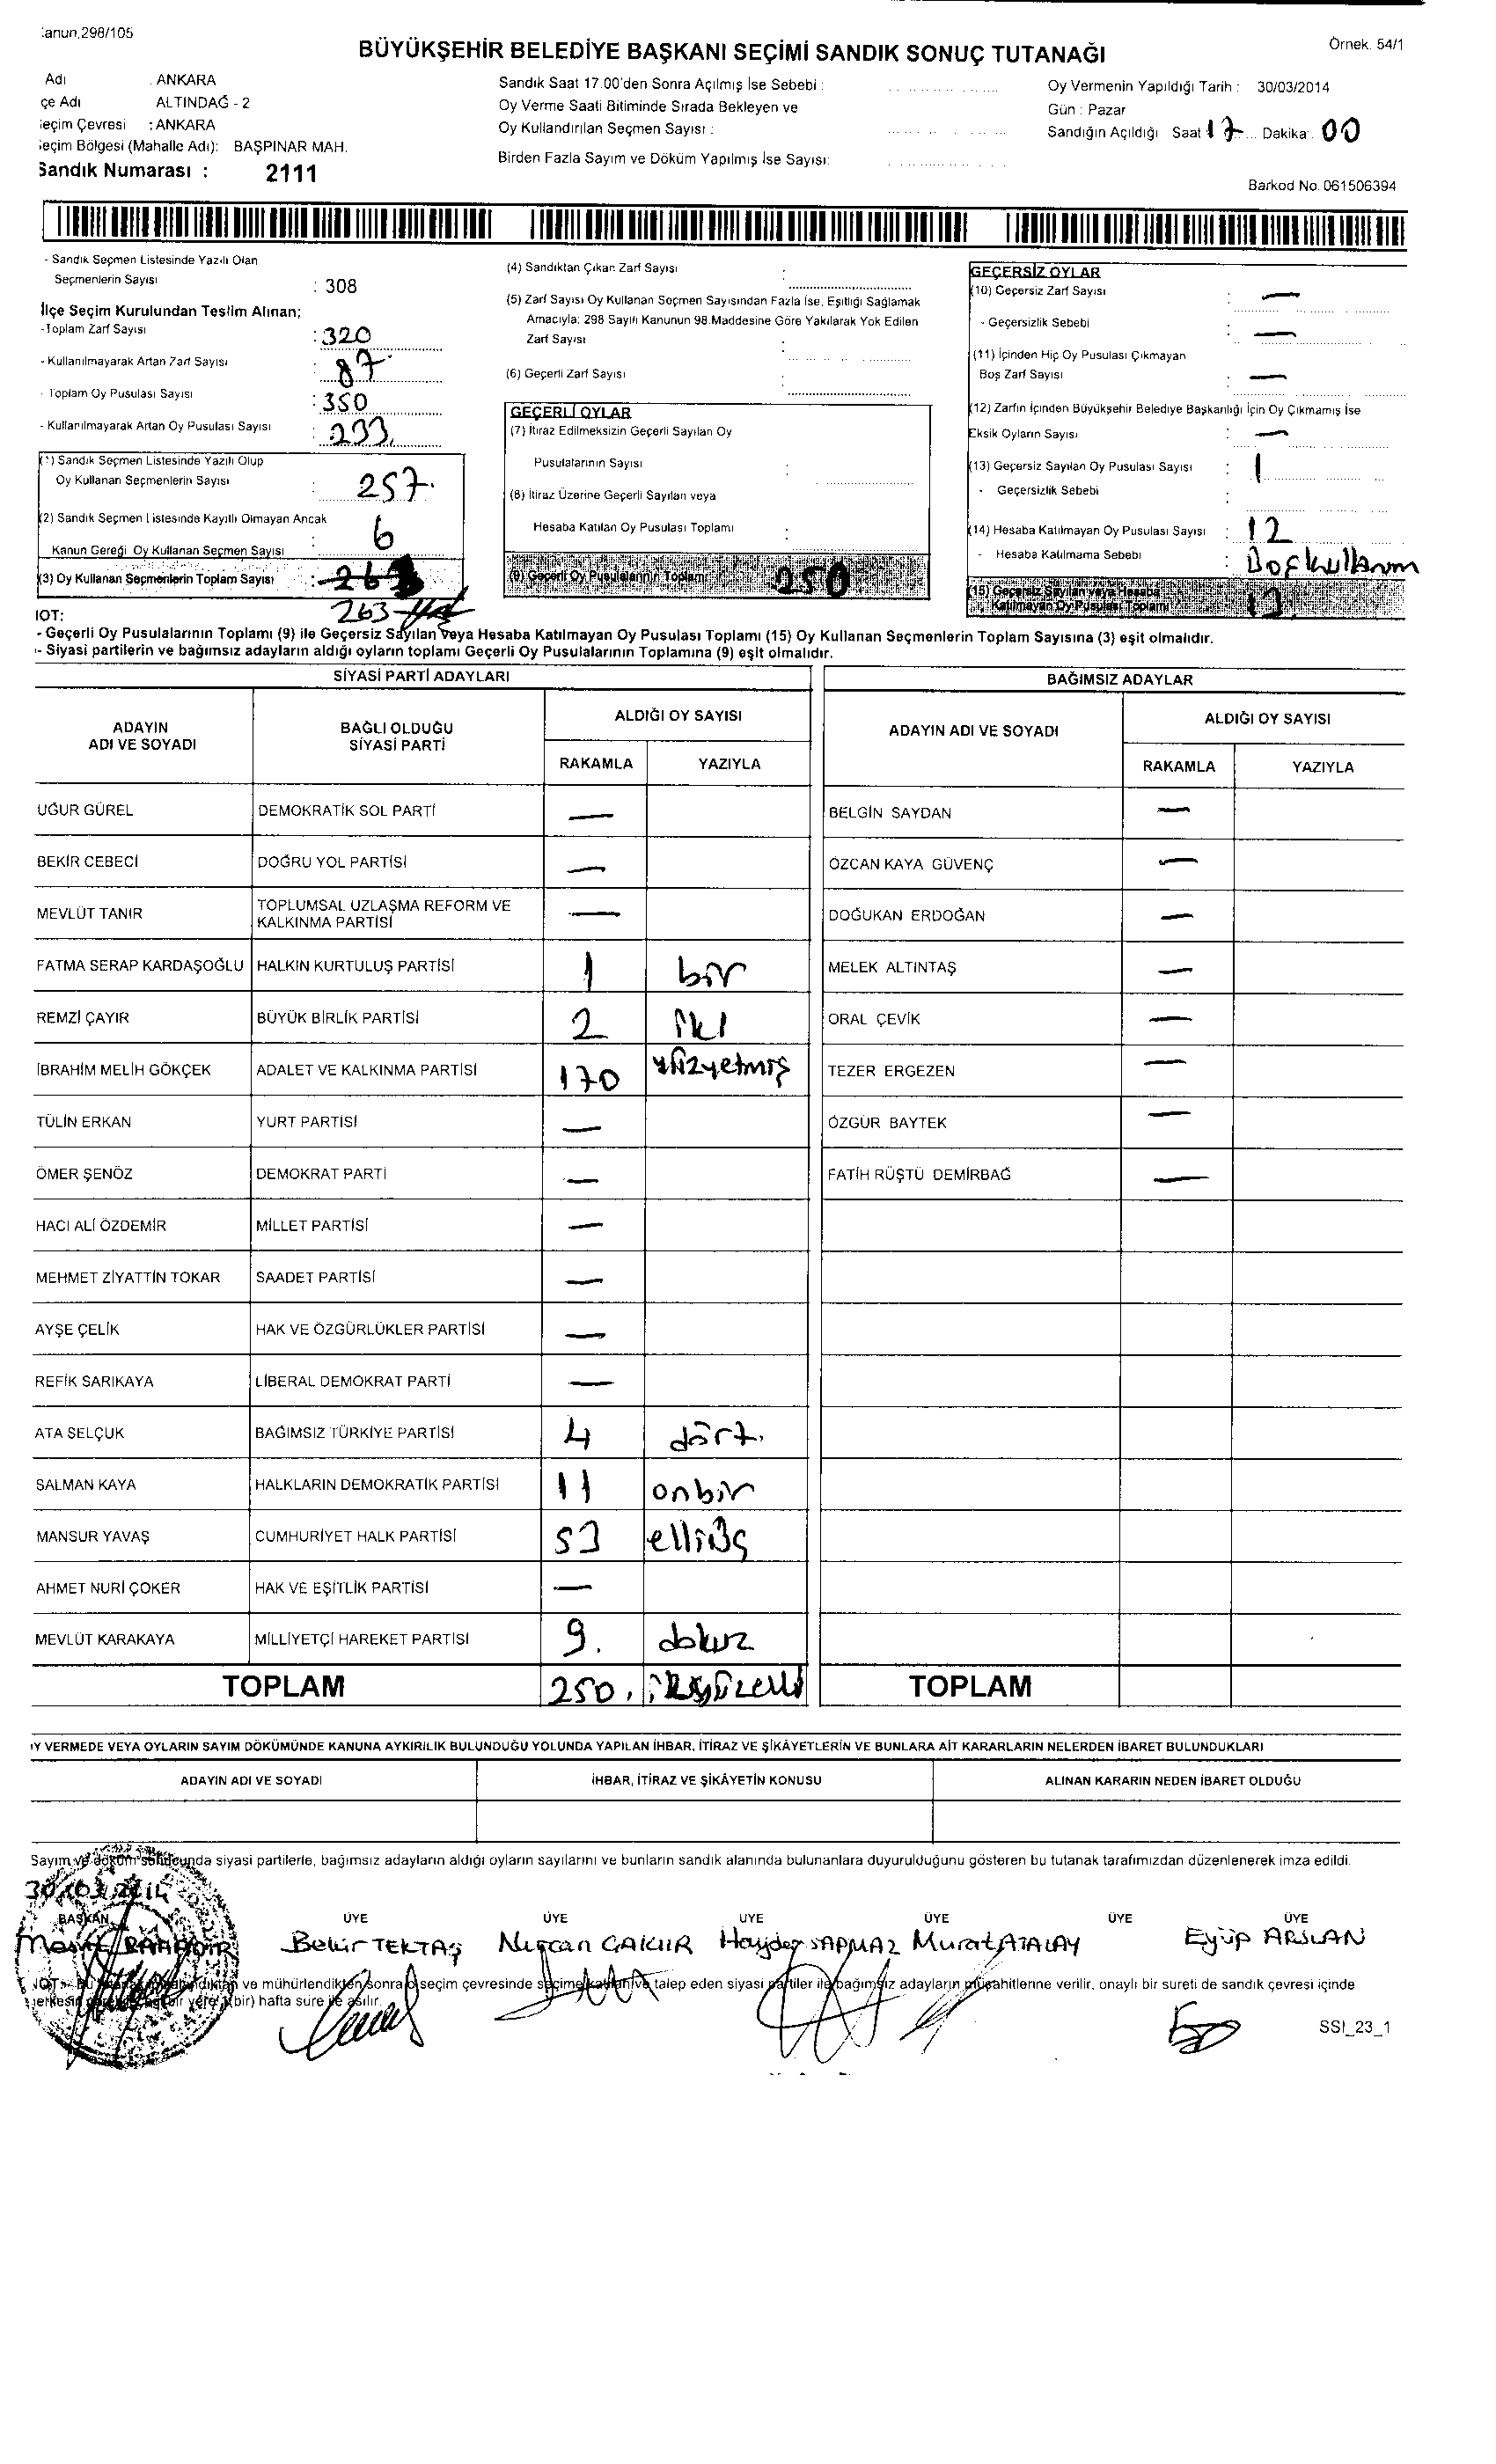 anun,298/105
Örnek. 54/1
BÜYÜKŞEHİR BELEDİYE BAŞKANI SEÇİMİ SANDIK SONUÇ TUTANAĞI
Adı : ANKARA
çe Adı ALTINDAĞ - 2
eçim Çevresi : ANKARA
eçim Bölgesi (Mahalle Adı): BAŞPINAR MAH.
Sandık Numarası : 2111
Sandık Saat 17.00'den Sonra Açılmış İse Sebebi :
Oy Verme Saati Bitiminde Sırada Bekleyen ve
Oy Kullandırılan Seçmen Sayısı :
Birden Fazla Sayım ve Döküm Yapılmış İse Sayısı:
Oy Vermenin Yapıldığı Tarih : 30/03/2014
Gün : Pazar
Sandığın Açıldığı Saat 17 Dakika: 00
Barkod No. 061506394
- Sandık Seçmen Listesinde Yazılı Olan
Seçmenlerin Sayısı : 308
İlçe Seçim Kurulundan Teslim Alınan;
-Toplam Zarf Sayısı : 320
- Kullanılmayarak Artan Zarf Sayısı : 87
- Toplam Oy Pusulası Sayısı : 350
- Kullanılmayarak Artan Oy Pusulası Sayısı : 233
(1) Sandık Seçmen Listesinde Yazılı Olup
Oy Kullanan Seçmenlerin Sayısı : 257
(2) Sandık Seçmen Listesinde Kayıtlı Olmayan Ancak
Kanun Gereği Oy Kullanan Seçmen Sayısı : 6
(3) Oy Kullanan Seçmenlerin Toplam Sayısı : 263
263
(4) Sandıktan Çıkan Zarf Sayısı :
(5) Zarf Sayısı Oy Kullanan Seçmen Sayısından Fazla İse, Eşitliği Sağlamak
Amacıyla: 298 Sayılı Kanunun 98.Maddesine Göre Yakılarak Yok Edilen
Zarf Sayısı :
(6) Geçerli Zarf Sayısı :
GEÇERLİ OYLAR
(7) İtiraz Edilmeksizin Geçerli Sayılan Oy
Pusulalarının Sayısı :
(8) İtiraz Üzerine Geçerli Sayılan veya
Hesaba Katılan Oy Pusulası Toplamı :
(9) Geçerli Oy Pusulalarının Toplamı 250
GEÇERSİZ OYLAR
(10) Geçersiz Zarf Sayısı : —
- Geçersizlik Sebebi : —
(11) İçinden Hiç Oy Pusulası Çıkmayan
Boş Zarf Sayısı : —
(12) Zarfın İçinden Büyükşehir Belediye Başkanlığı İçin Oy Çıkmamış İse
Eksik Oyların Sayısı : —
(13) Geçersiz Sayılan Oy Pusulası Sayısı : 1
- Geçersizlik Sebebi :
(14) Hesaba Katılmayan Oy Pusulası Sayısı : 12
- Hesaba Katılmama Sebebi : Boş kullanım
(15) Geçersiz Sayılan veya Hesaba
Katılmayan Oy Pusulası Toplamı 13
NOT:
- Geçerli Oy Pusulalarının Toplamı (9) ile Geçersiz Sayılan veya Hesaba Katılmayan Oy Pusulası Toplamı (15) Oy Kullanan Seçmenlerin Toplam Sayısına (3) eşit olmalıdır.
- Siyasi partilerin ve bağımsız adayların aldığı oyların toplamı Geçerli Oy Pusulalarının Toplamına (9) eşit olmalıdır.
SİYASİ PARTİ ADAYLARI
ADAYIN ADI VE SOYADI BAĞLI OLDUĞU SİYASİ PARTİ ALDIĞI OY SAYISI
RAKAMLA YAZIYLA
UĞUR GÜREL DEMOKRATİK SOL PARTİ —
BEKİR CEBECİ DOĞRU YOL PARTİSİ —
MEVLÜT TANIR TOPLUMSAL UZLAŞMA REFORM VE KALKINMA PARTİSİ —
FATMA SERAP KARDAŞOĞLU HALKIN KURTULUŞ PARTİSİ 1 bir
REMZİ ÇAYIR BÜYÜK BİRLİK PARTİSİ 2 iki
İBRAHİM MELİH GÖKÇEK ADALET VE KALKINMA PARTİSİ 170 yüzyetmiş
TÜLİN ERKAN YURT PARTİSİ —
ÖMER ŞENÖZ DEMOKRAT PARTİ —
HACI ALİ ÖZDEMİR MİLLET PARTİSİ —
MEHMET ZİYATTİN TOKAR SAADET PARTİSİ —
AYŞE ÇELİK HAK VE ÖZGÜRLÜKLER PARTİSİ —
REFİK SARIKAYA LİBERAL DEMOKRAT PARTİ —
ATA SELÇUK BAĞIMSIZ TÜRKİYE PARTİSİ 4 dört.
SALMAN KAYA HALKLARIN DEMOKRATİK PARTİSİ 11 onbir
MANSUR YAVAŞ CUMHURİYET HALK PARTİSİ 53 elliüç
AHMET NURİ ÇOKER HAK VE EŞİTLİK PARTİSİ —
MEVLÜT KARAKAYA MİLLİYETÇİ HAREKET PARTİSİ 9. dokuz
TOPLAM 250. ikiyüzelli
BAĞIMSIZ ADAYLAR
ADAYIN ADI VE SOYADI ALDIĞI OY SAYISI
RAKAMLA YAZIYLA
BELGİN SAYDAN —
ÖZCAN KAYA GÜVENÇ —
DOĞUKAN ERDOĞAN —
MELEK ALTINTAŞ —
ORAL ÇEVİK —
TEZER ERGEZEN —
ÖZGÜR BAYTEK —
FATİH RÜŞTÜ DEMİRBAĞ —
TOPLAM
Y VERMEDE VEYA OYLARIN SAYIM DÖKÜMÜNDE KANUNA AYKIRILIK BULUNDUĞU YOLUNDA YAPILAN İHBAR, İTİRAZ VE ŞİKÂYETLERİN VE BUNLARA AİT KARARLARIN NELERDEN İBARET BULUNDUKLARI
ADAYIN ADI VE SOYADI İHBAR, İTİRAZ VE ŞİKÂYETİN KONUSU ALINAN KARARIN NEDEN İBARET OLDUĞU
Sayım ve döküm sonucunda siyasi partilerle, bağımsız adayların aldığı oyların sayılarını ve bunların sandık alanında bulunanlara duyurulduğunu gösteren bu tutanak tarafımızdan düzenlenerek imza edildi.
30/03/2014
BAŞKAN ÜYE ÜYE ÜYE ÜYE ÜYE ÜYE
Bekir TEKTAŞ Nurcan ÇAKIR Haydar SAPMAZ Murat ATALAY Eyüp ARSLAN
NOT: ve mühürlendikten sonra seçim çevresinde seçime katılan ve talep eden siyasi partiler ile bağımsız adayların müşahitlerine verilir, onaylı bir sureti de sandık çevresi içinde
(bir) hafta süre ile asılır.
SSI_23_1